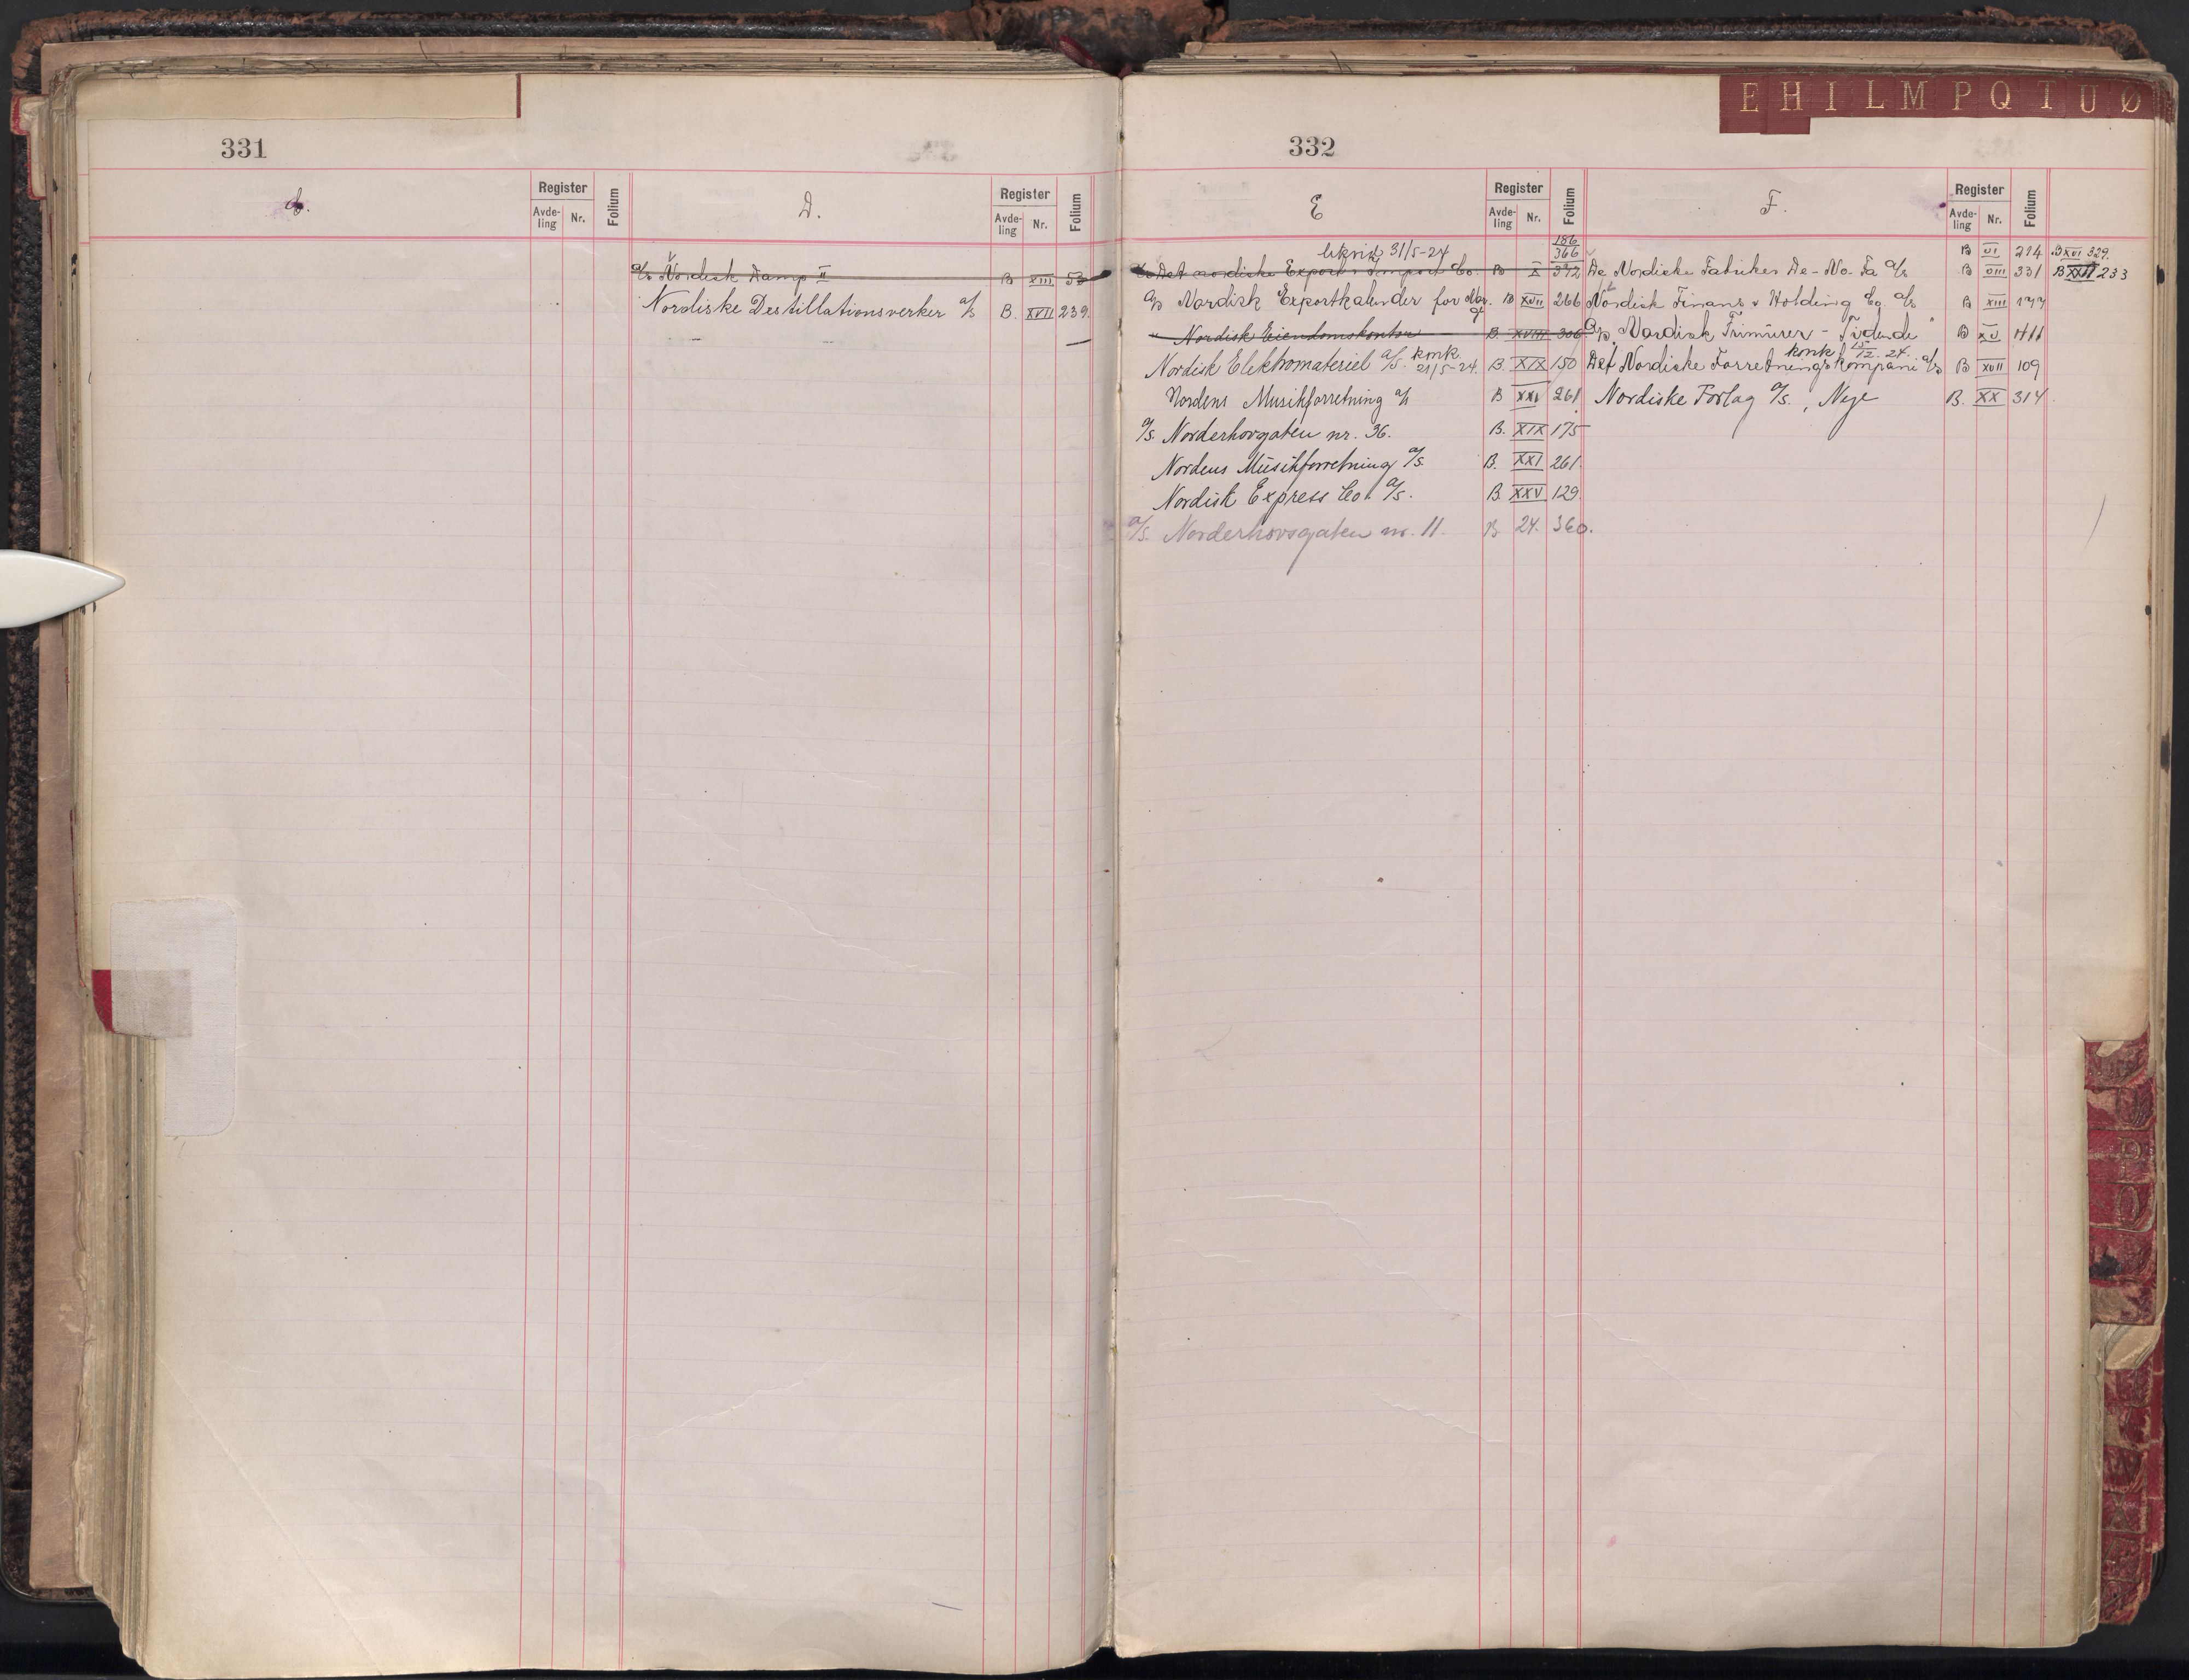 E H I L M P Q T U Ø
331
C.
Register
Avde-
ling
Nr.
Folium
D.
Register
Avde-
ling
Nr.
Folium
a/s Nordisk Damp II B XIII 53
Nordiske Destillationsverker a/s B. XVII 239.
332
E
Register
Avde-
ling
Nr.
Folium
186
31/5-24 366
Det nordiske Export & Import Co. B X 392
a/s Nordisk Exportkalender for Norge B XVII 266
Nordisk Eiendomskontor B. XVIII 306
Nordisk Elektromateriel a/s. konk. 21/5-24. B. XIX 150
Nordens Musikforretning a/s B XXI 261
a/s. Norderhovgaten nr. 36. B. XIX 175
Nordens Musikforretning a/s. B. XXI 261.
Nordisk Express Co. a/s. B. XXV 129.
a/s. Norderhovsgaten nr. 11. B. 24. 360.
F.
Register
Avde-
ling
Nr.
Folium
B VI 294 B XVI 329.
De Nordiske Fabriker De-No-Fa a/s B VIII 331 B XXII 233
Nordisk Finans & Holding Co. a/s B XIII 177
a/s "Nordisk Frimurer-Tidende" B XV 411
konk. 15/12.24.
Det Nordiske Forretningskompani a/s B XVII 109
Nordiske Forlag a/s., Nye B. XX 314.